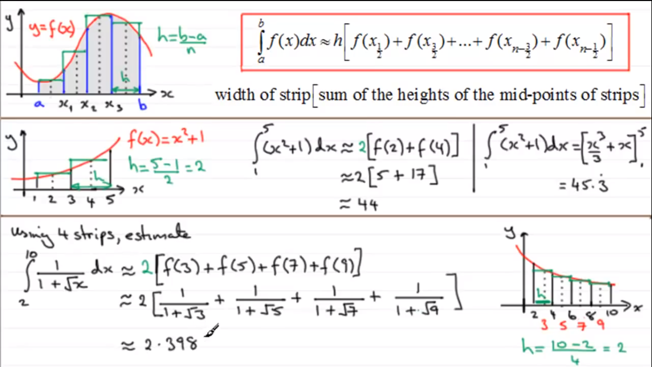 y
y=f(x)
h=b-a/n
h
a x₁ x₂ x₃ b x
∫ₐᵇ f(x)dx ≈ h[f(x_{1/2})+f(x_{3/2})+...+f(x_{n-3/2})+f(x_{n-1/2})]
width of strip[sum of the heights of the mid-points of strips]
y
f(x)=x²+1
h=5-1/2=2
h
1 2 3 4 5 x
∫₁⁵(x²+1)dx≈2[f(2)+f(4)]
≈2[5+17]
≈44
∫₁⁵(x²+1)dx=[x³/3+x]₁⁵
=45.3̇
using 4 strips, estimate
∫₂¹⁰ 1/1+√x dx ≈ 2[f(3)+f(5)+f(7)+f(9)]
≈ 2[1/1+√3 + 1/1+√5 + 1/1+√7 + 1/1+√9]
≈ 2.398
y
h
2 4 6 8 10 x
3 5 7 9
h=10-2/4=2